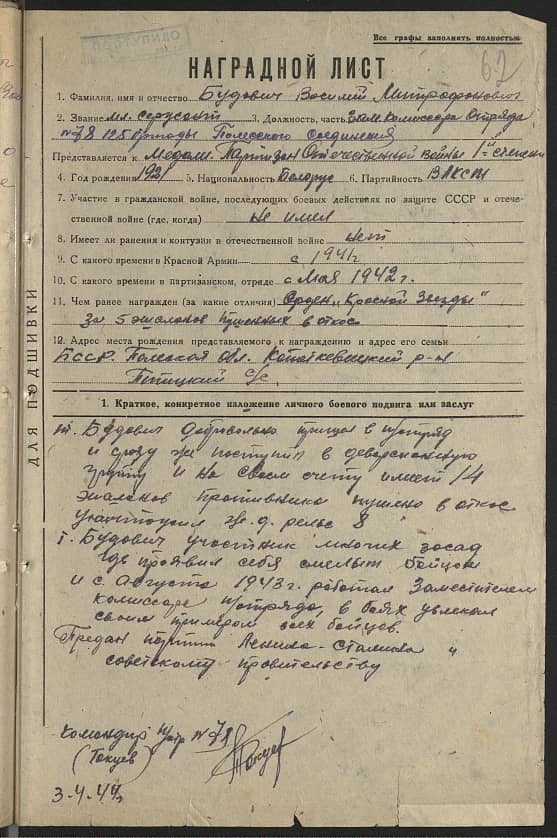 Все графы заполнять полностью
62
НАГРАДНОЙ ЛИСТ
1. Фамилия, имя и отчество Будович Василий Митрофанович
2. Звание мл. сержант 3. Должность, часть Зам. комиссара отряда
№78 125 бригады Полесского Соединения
Представляется к Медали "Партизан Отечественной войны" I-й степени
4. Год рождения 1921 5. Национальность Белорус 6. Партийность ВЛКСМ
7. Участие в гражданской войне, последующих боевых действиях по защите СССР и отече-
ственной войне (где, когда) не имел
8. Имеет ли ранения и контузии в отечественной войне нет
9. С какого времени в Красной Армии с 1941
10. С какого времени в партизанском, отряде с Мая 1942 г.
11. Чем ранее награжден (за какие отличия) Орден "Красной Звезды"
За 5 эшалонов пущенных в откос
12. Адрес места рождения представляемого к награждению и адрес его семьи
БССР. Полеская Обл. Копаткевичский р-н
Птичский с/с
ДЛЯ ПОДШИВКИ
1. Краткое, конкретное изложение личного боевого подвига или заслуг
т. Будович добровольно пришел в п/отряд
и сразу же поступил в деверсионную
группу и на своем счету имеет 14
эшалонов противника пущено в откос
ж. д. рельс 8
т. Будович участник многих засад
где проявил себя смелым бойцом
и с Августа 1943 г. работал Заместителем
комиссара п/отряда, в боях увлекал
своим примером всех бойцов.
Предан партии Ленина-Сталина и
советскому правительству
Командир п/отр №78
(Токуев)
3-4-44г.